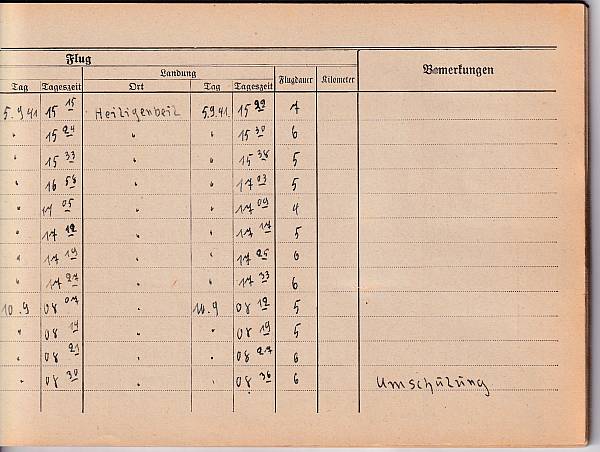 Flug
Landung
Tag Tageszeit Ort Tag Tageszeit Flugdauer Kilometer Bemerkungen
5.9.41 15 15 Heiligenbeil 5.9.41. 15 22 7
" 15 24 " " 15 30 6
" 15 33 " " 15 38 5
" 16 58 " " 17 03 5
" 17 05 " " 17 09 4
" 17 12 " " 17 17 5
" 17 19 " " 17 25 6
" 17 27 " " 17 33 6
10.9 08 07 " 10.9 08 12 5
" 08 14 " " 08 19 5
" 08 21 " " 08 27 6
" 08 30 " " 08 36 6 Umschulung